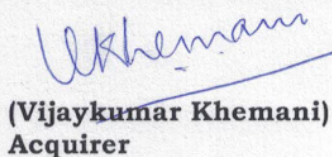 VKhemani
(Vijaykumar Khemani)
Acquirer